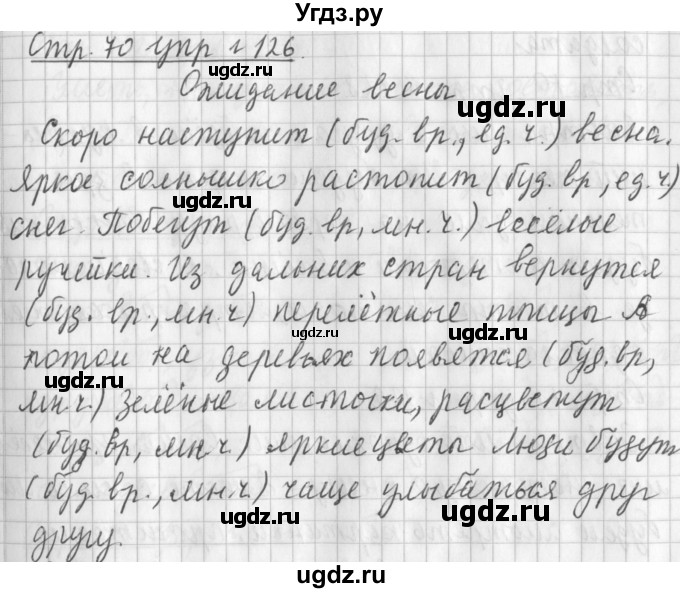 Угдз.ру
Стр. 70 упр. № 126.
Ожидание весны
Скоро наступит (буд. вр., ед. ч.) весна.
Яркое солнышко растопит (буд. вр, ед. ч.)
снег. Побегут (буд. вр, мн. ч.) весёлые
ручейки. Из дальних стран вернутся
(буд. вр., мн. ч) перелётные птицы А
потом на деревьях появятся (буд. вр,
мн. ч.) зелёные листочки, расцветут
(буд. вр, мн. ч.) яркие цветы Люди будут
(буд. вр., мн. ч.) чаще улыбаться друг
другу.
ugdz.ru
ugdz.ru
ugdz.ru
ugdz.ru
ugdz.ru
ugdz.ru
ugdz.ru
ugdz.ru
ugdz.ru